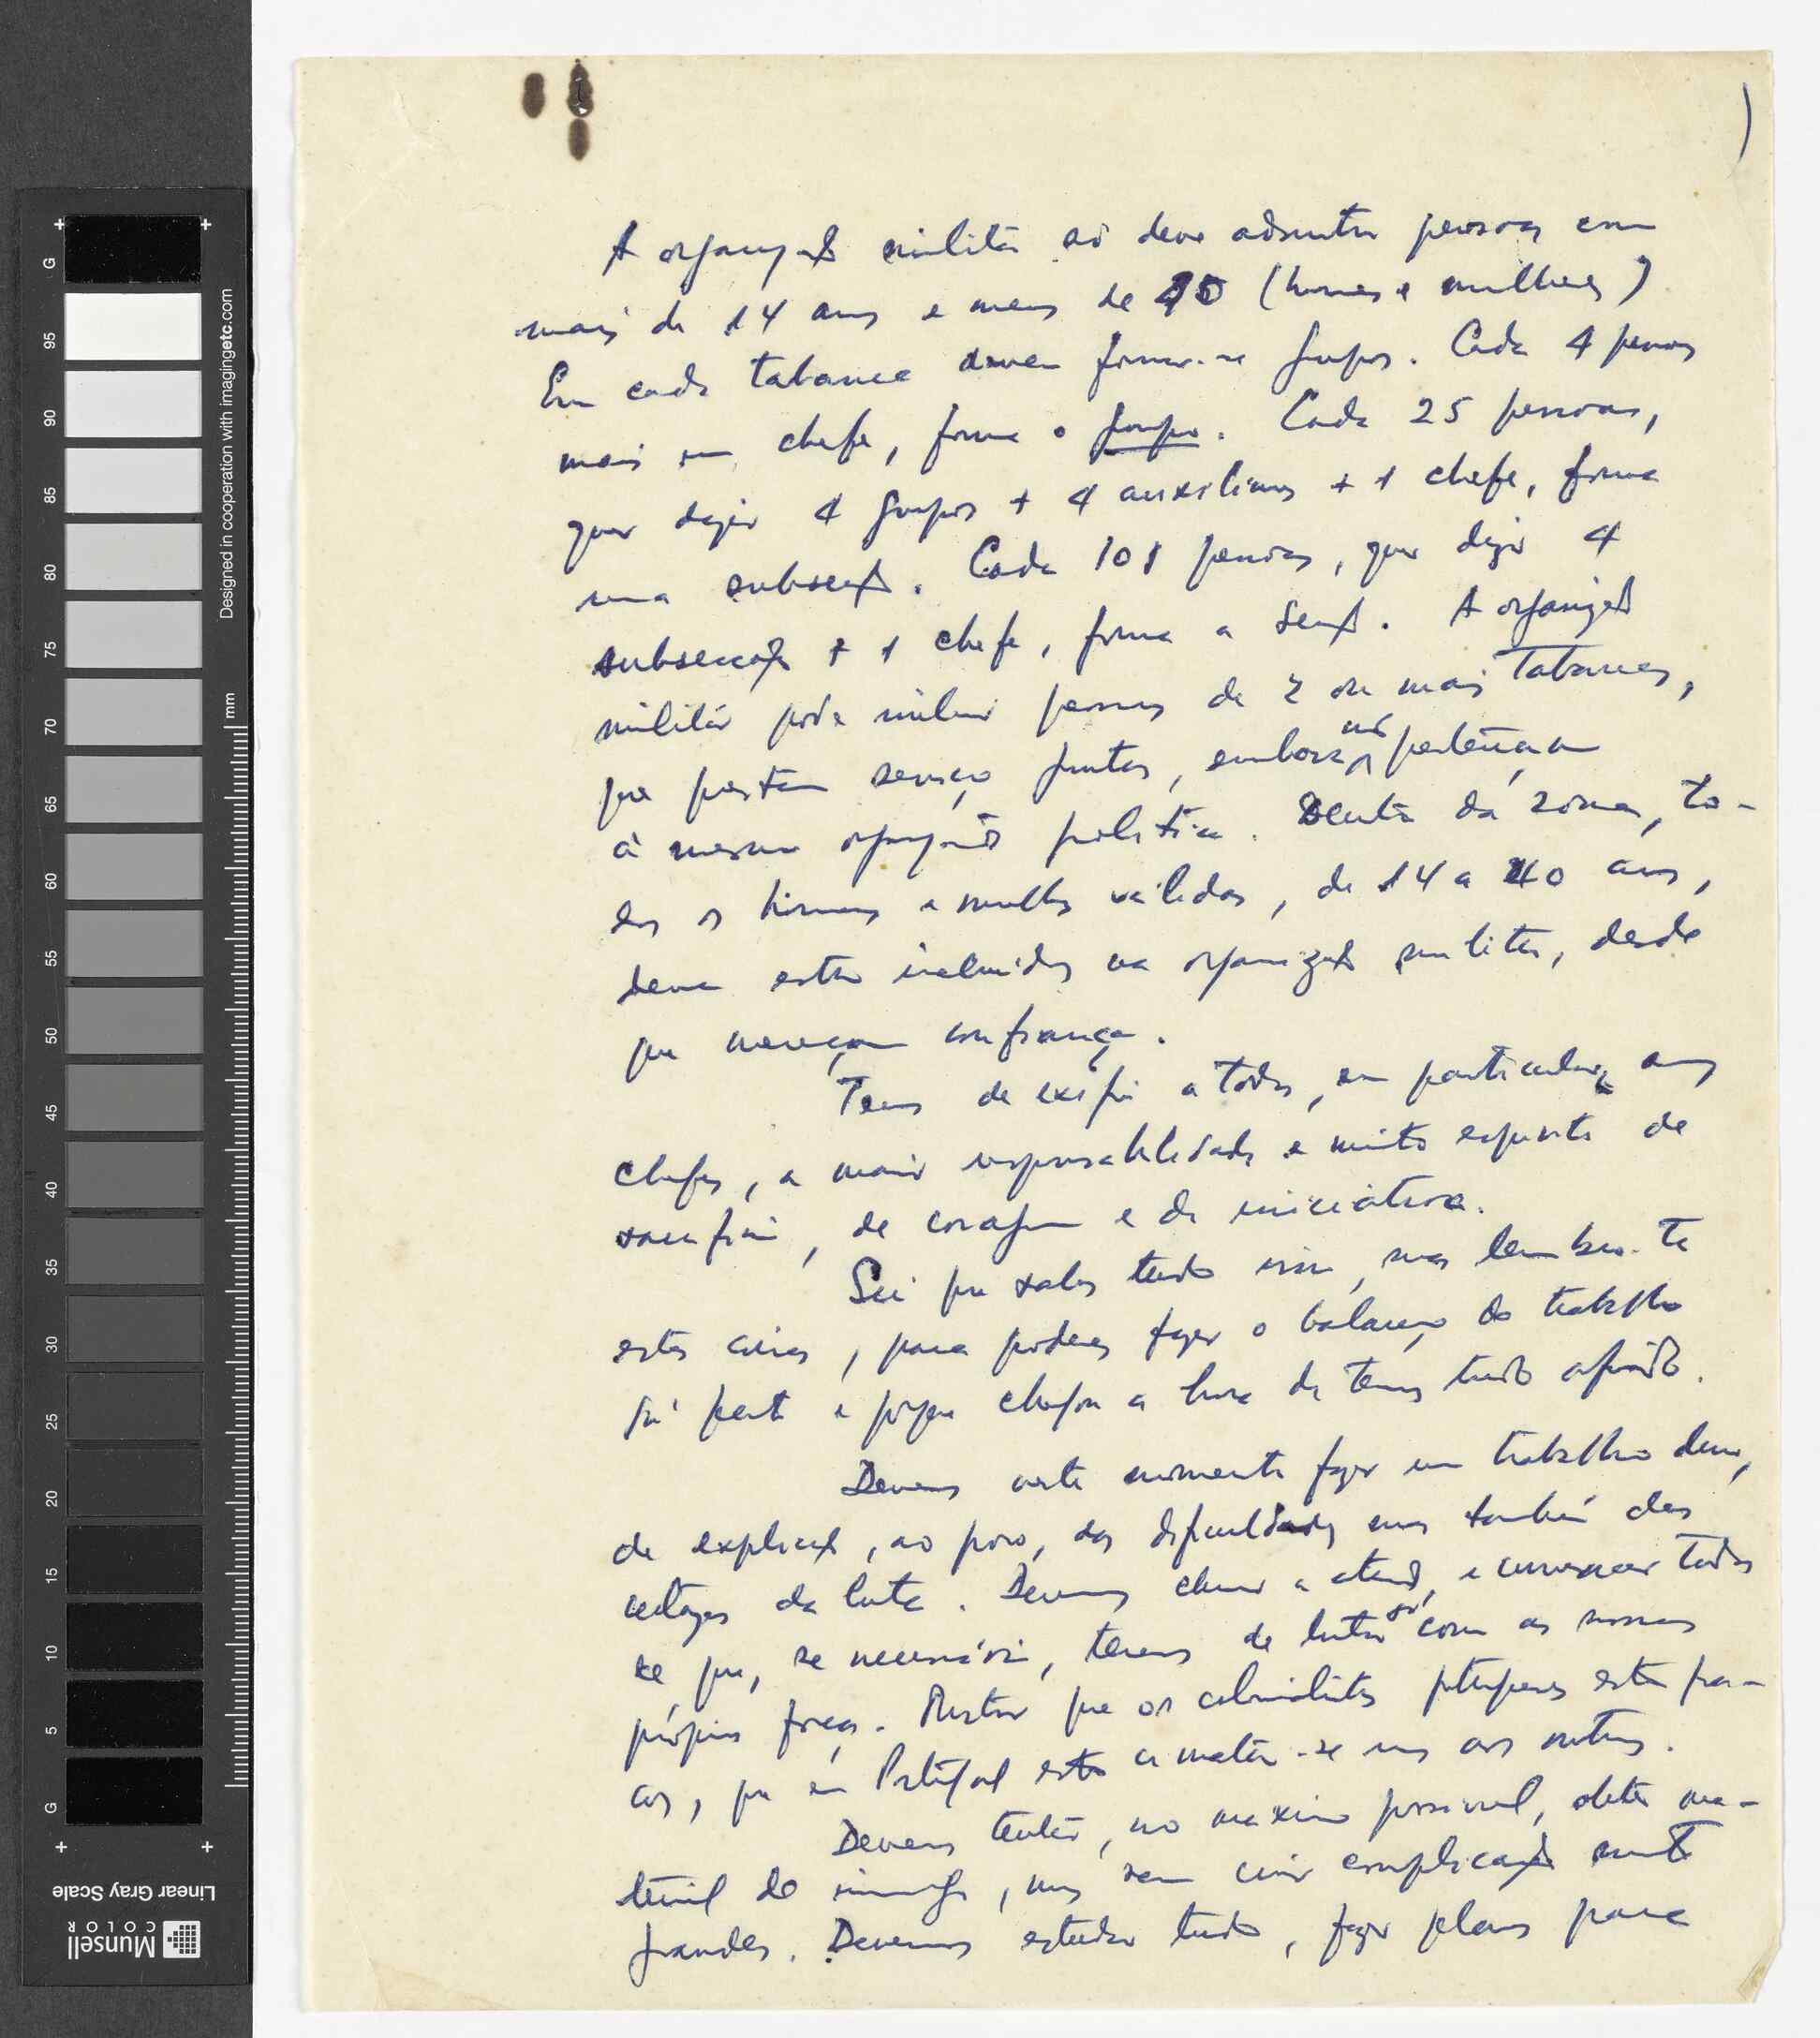 A organização militar só deve admitir pessoas com
mais de 14 anos e menos de 40 (homens e mulheres)
Em cada tabanca devem formar-se grupos. Cada 4 pessoas
mais um chefe, forma o grupo. Cada 25 pessoas,
quer dizer 4 grupos + 4 auxiliares + 1 chefe, forma
uma subsecção. Cada 101 pessoas, quer dizer 4
subsecções + 1 chefe, forma a Secção. A organização
militar pode incluir pessoas de 2 ou mais Tabancas,
que prestam serviço juntas, embora não pertençam
à mesma organização política. Dentro da zona, to-
dos os homens e mulheres válidos, de 14 a 40 anos,
devem estar incluidos na organização militar, desde
que mereçam confiança.
Temos de exigir a todos, em particular aos
chefes, a maior responsabilidade e muito espirito de
sacrifício, de coragem e de iniciativa.
Sei que sabes tudo isso, mas lembro-te
estas coisas, para poderes fazer o balanço do trabalho
já feito e porque chegou a hora de termos tudo afinado.
Devemos neste momento fazer um trabalho
de explicação, ao povo, das dificuldades mas também das
vantagens da luta. Devemos chamar a atenção, e convencer todos
de que, se necessário, temos de lutar só com as nossas
próprias forças. Mostrar que os colonialistas portugueses estão fra-
cos, que em Portugal estão a matar-se uns aos outros.
Devemos tentar, no maximo possivel, obter ma-
terial do inimigo, mas sem criar complicações muito
grandes. Devemos estudar tudo, fazer planos para